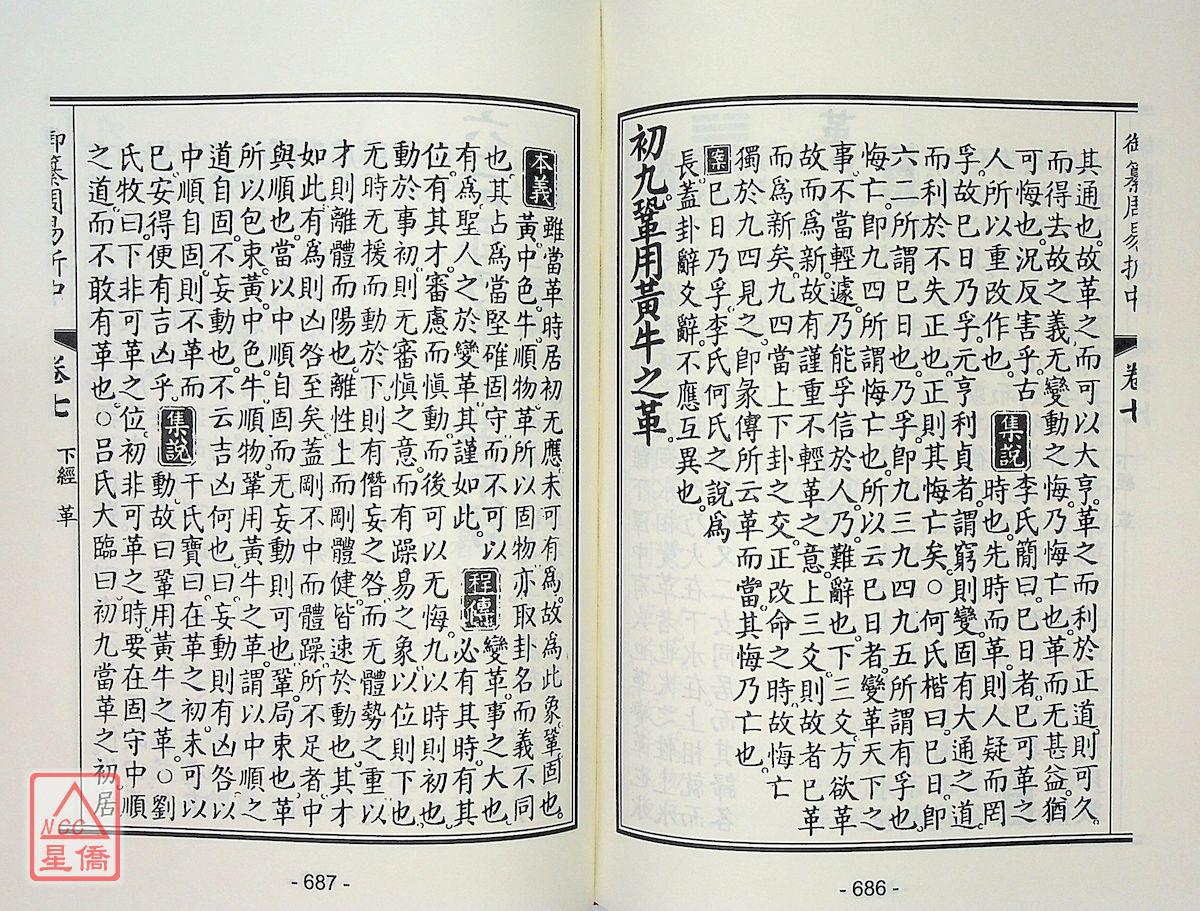 御纂周易折中
卷七
其通也。故革之而可以大亨。革之而利於正道。則可久。
而得去故之義。无變動之悔。乃悔亡也。革而无甚益。猶
可悔也。況反害乎。古
人所以重改作也。
集說
李氏簡曰。巳日者。巳可革之
時也。先時而革。則人疑而罔
孚。故巳日乃孚。元亨利貞者。謂窮則變。固有大通之道。
而利於不失正也。正則其悔亡矣。○何氏楷曰。巳日卽
六二所謂巳日也。乃孚。卽九三九四九五所謂有孚也。
悔亡。卽九四所謂悔亡也。所以云巳日者。變革天下之
事。不當輕遽。乃能孚信於人。乃難辭也。下三爻。方欲革
故而爲新。故有謹重不輕革之意。上三爻。則故者已革
而爲新矣。九四當上下卦之交。正改命之時。故悔亡
獨於九四見之。卽彖傳所云革而當。其悔乃亡也。
案
巳日乃孚。李氏何氏之說爲
長。蓋卦辭爻辭。不應互異也。
初九鞏用黃牛之革。
- 686 -
本義
雖當革時。居初无應。未可有爲。故爲此象。鞏固也。
黃中色。牛順物。革所以固物。亦取卦名。而義不同
也。其占爲當堅確固守。而不可以
有爲。聖人之於變革。其謹如此。
程傳
變革。事之大也。
必有其時。有其
位。有其才。審慮而愼動。而後可以无悔。九以時則初也。
動於事初。則无審愼之意。而有躁易之象。以位則下也。
无時无援而動於下。則有僭妄之咎。而无體勢之重。以
才則離體而陽也。離性上而剛體健。皆速於動也。其才
如此。有爲則凶咎至矣。蓋剛不中而體躁。所不足者。中
與順也。當以中順自固。而无妄動則可也。鞏。局束也。革
所以包束。黃。中色。牛。順物。鞏用黃牛之革。謂以中順之
道自固。不妄動也。不云吉凶何也。曰妄動則有凶咎。以
中順自固。則不革而
巳。安得便有吉凶乎。
集說
干氏寶曰。在革之初。未可以
動。故曰鞏用黃牛之革。○劉
氏牧曰。下非可革之位。初非可革之時。要在固守中順
之道。而不敢有革也。○呂氏大臨曰。初九當革之初。居
御纂周易折中
卷七
下經
革
- 687 -
NCC
星僑